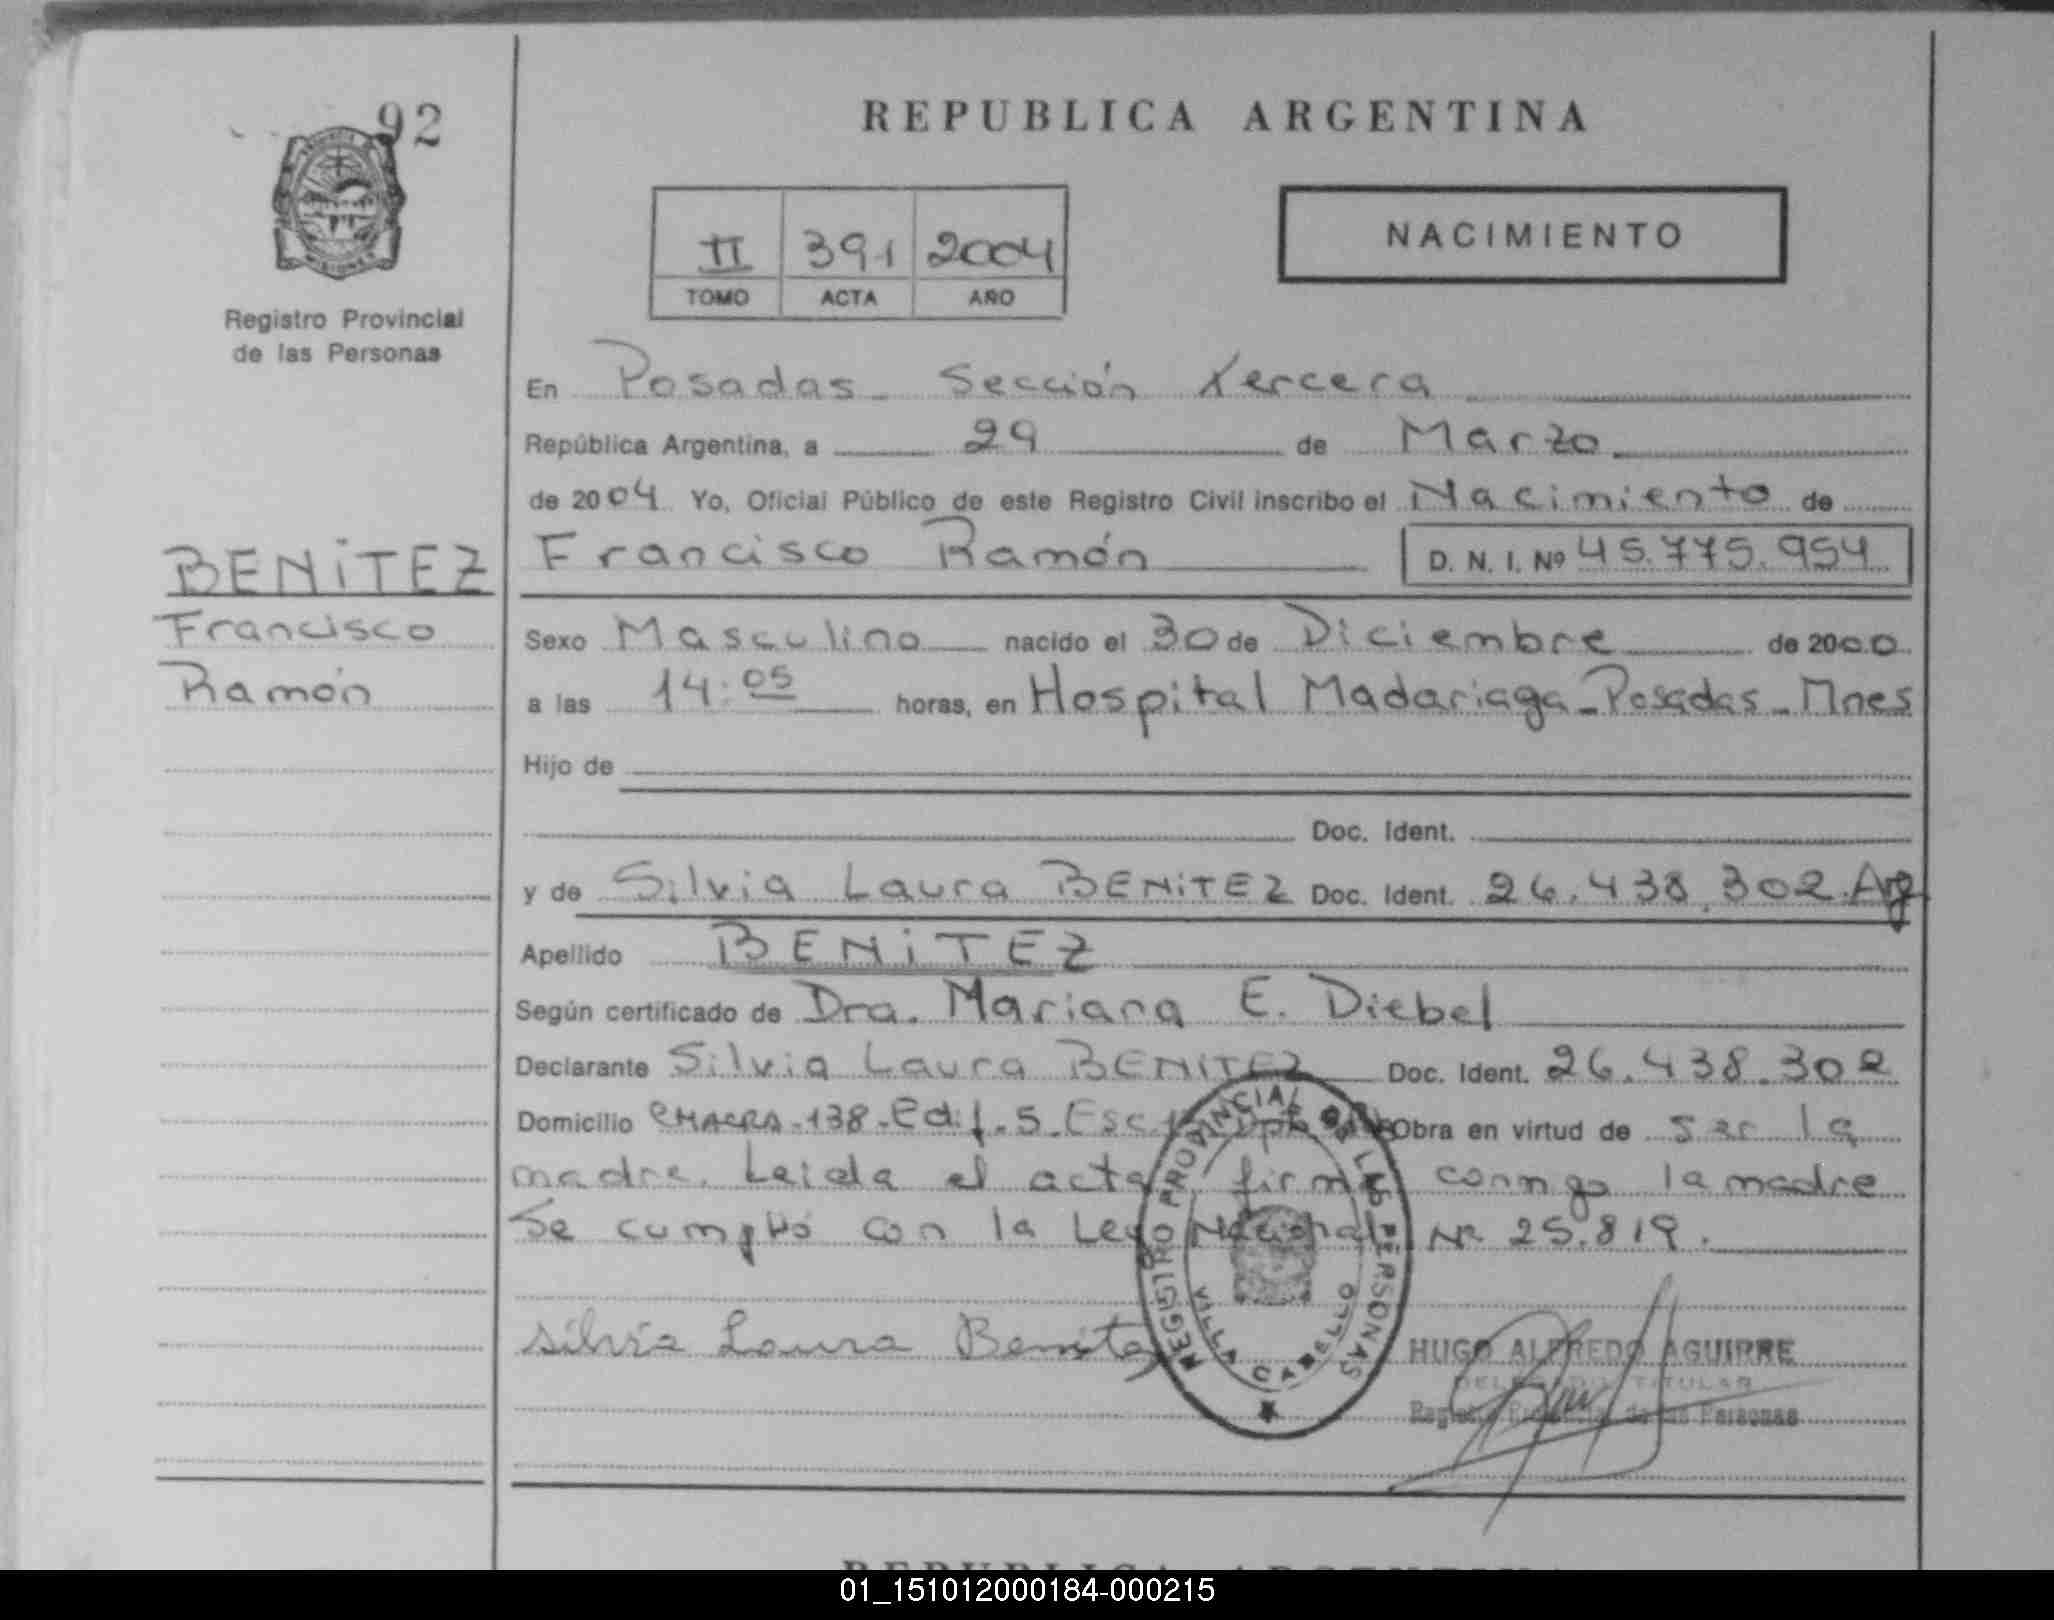 92
REPUBLICA ARGENTINA
II 391 2004
TOMO ACTA AÑO
NACIMIENTO
Registro Provincial
de las Personas
En Posadas - Sección Tercera
República Argentina, a 29 de Marzo
de 2004 Yo, Oficial Público de este Registro Civil inscribo el Nacimiento de
BENiTEZ
Francisco
Ramón
Francisco Ramón D. N. I. Nº 45.775.954
Sexo Masculino nacido el 30 de Diciembre de 2000
a las 14:05 horas, en Hospital Madariaga - Posadas - Mnes
Hijo de
Doc. Ident.
y de Silvia Laura BENiTEZ Doc. Ident. 26.438.302 Arg
Apellido BENiTEZ
Según certificado de Dra. Mariana E. Diebel
Declarante Silvia Laura BENITEZ Doc. Ident. 26.438.302
Domicilio CHACRA-138-Edif. 5. Obra en virtud de ser la
madre. Leida el acta firma conmigo la madre
Se cumplió con la Ley Nacional Nº 25.819.
Silvia Laura Benitez
REGISTRO PROVINCIAL DE LAS PERSONAS
VILLA CABELLO
HUGO ALFREDO AGUIRRE
DELEGADO TITULAR
Registro Provincial de las Personas
REPUBLICA ARGENTINA
01_151012000184-000215